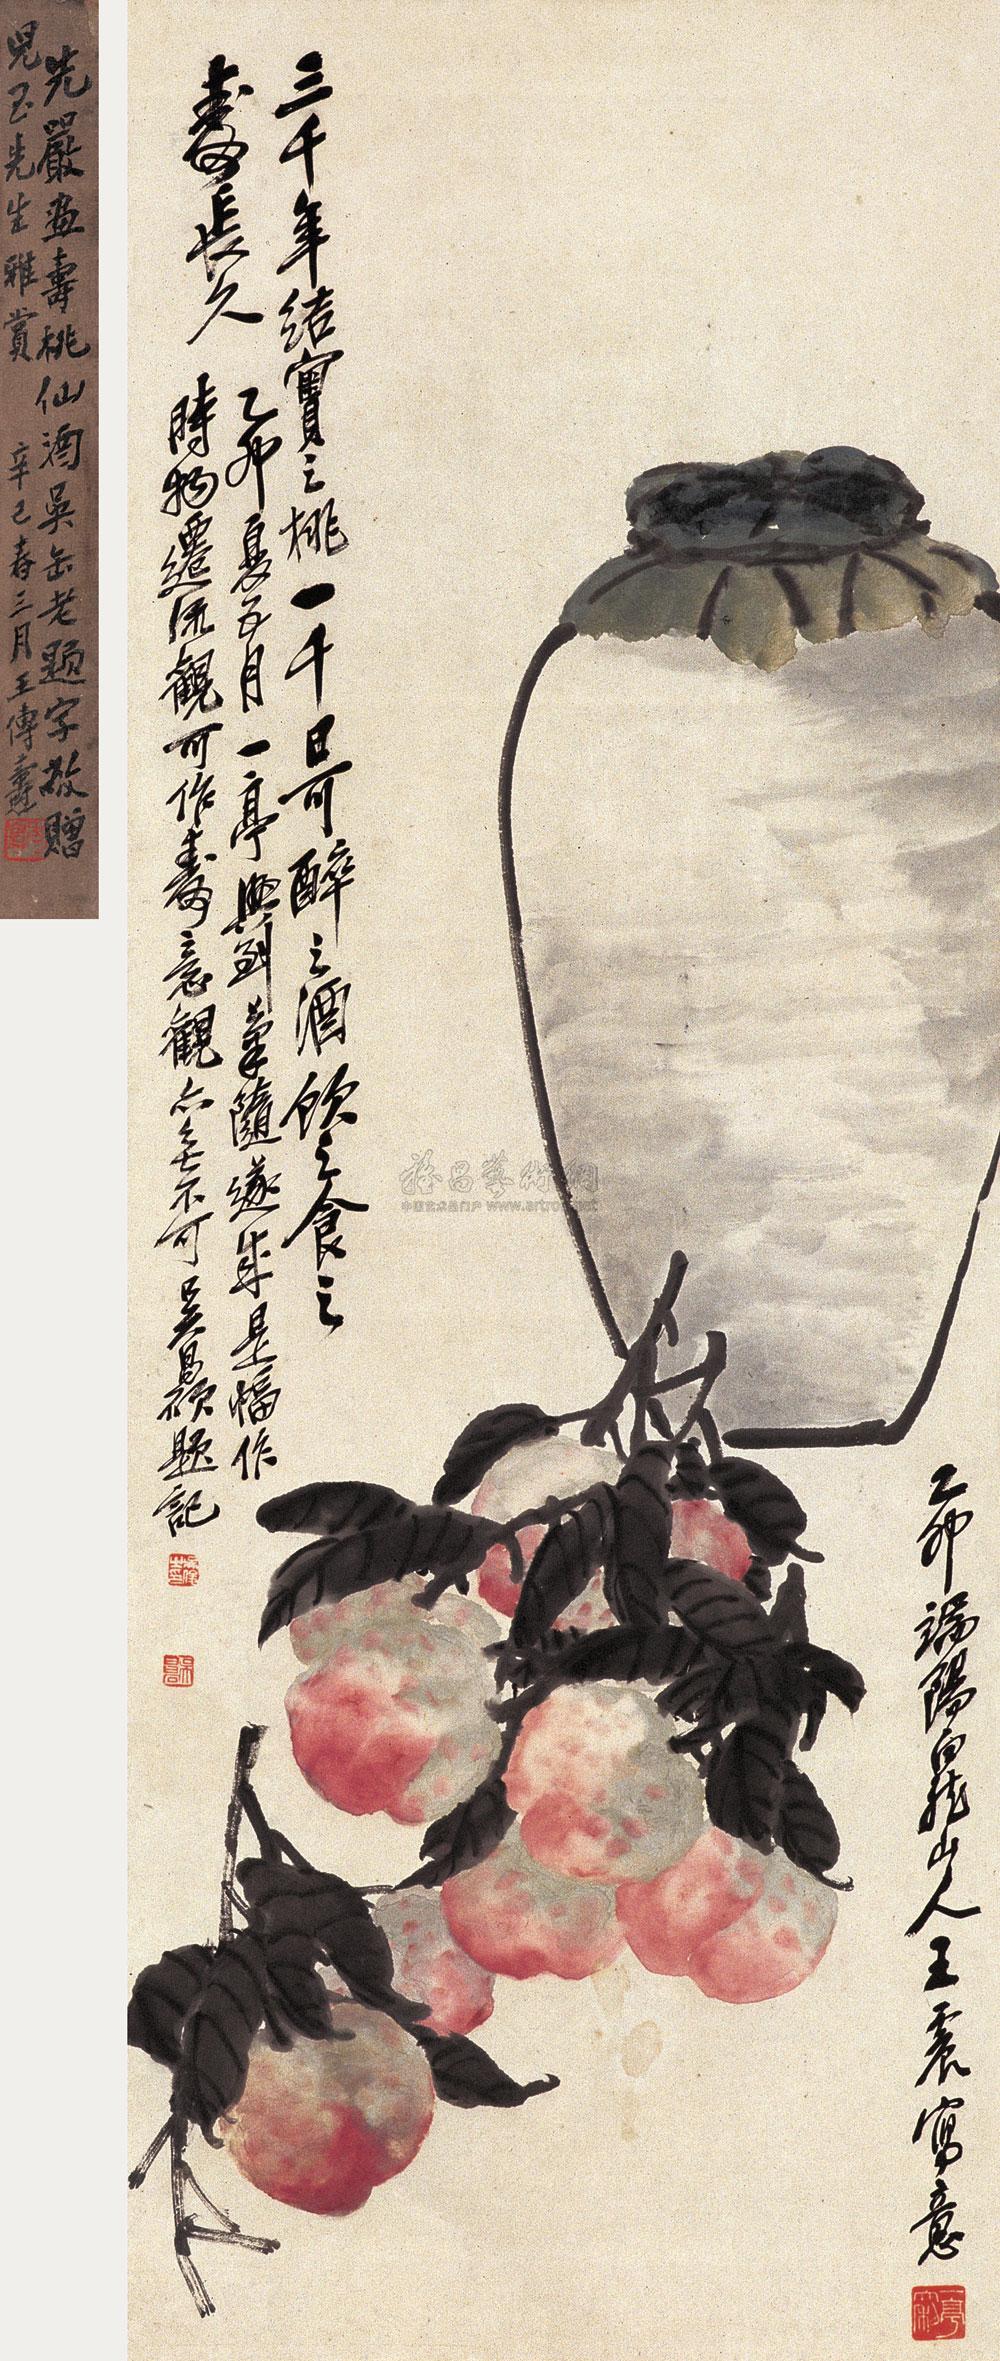 三千年結實之桃一千日可醉之酒飲之食之
壽長久
乙卯夏五月一亭興到筆隨遂成是幅作
時物遷流觀可作壽意觀亦無不可吳昌碩題記
乙卯端陽白龍山人王震寫意
一亭
先嚴畫壽桃仙酒吳缶老題字敬贈
兒玉先生雅賞
辛巳春三月王傳燾
中国艺术品门户 www.artron.net